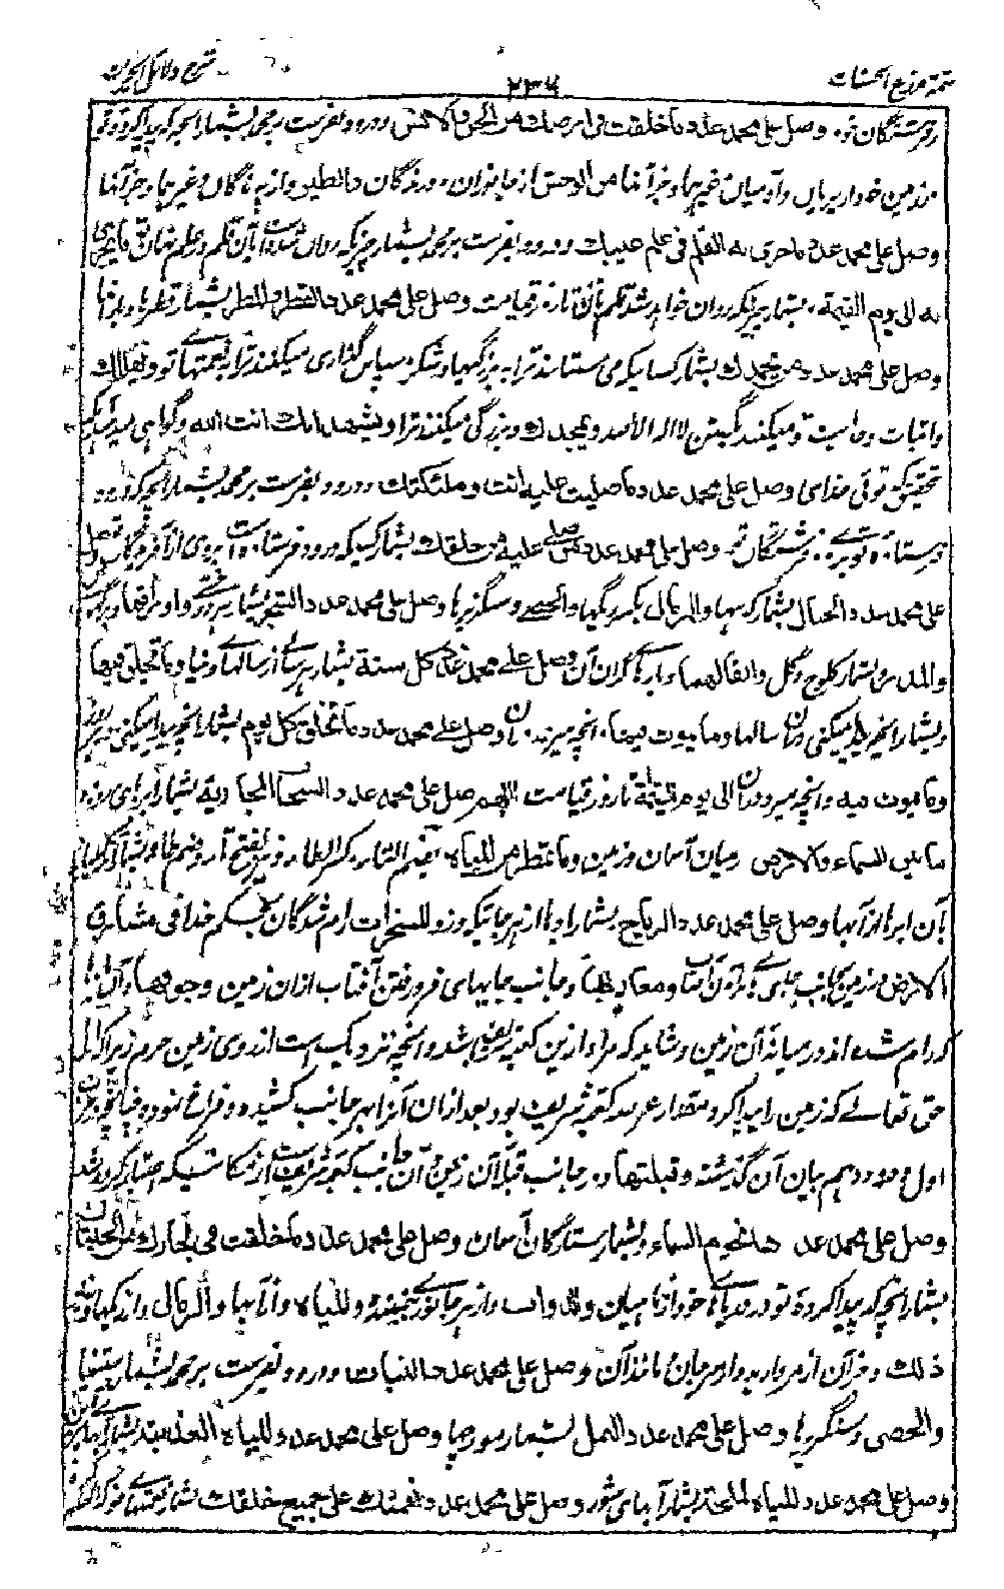 تتمه مزرع الحسنات
۲۳۶
شرح دلائل الخیرات
وصل علی محمد عدد ما خلقت فی ارضك من الجن والانس و درود بفرست بر محمد بشمار آنچه که پیدا کردهٔ تو
در زمین خود از پریان و آدمیان و غیرها من الوحش از جانوران درندگان والطیر و از پرندگان و غیرها و جز آنها
وصل علی محمد عدد ما جری به القلم فی علم غیبك و درود بفرست بر محمد بشمار چیزیکه روان شده است بآن قلم در علم
به الی یوم القیمة بشمار چیزیکه روان خواهد شد قلم بآن تا روز قیامت وصل علی محمد عدد القطر والمطر بشمار قطرها و بارانها
وصل علی محمد عدد من یحمدك بشمار کسانیکه می ستایند ترا به بزرگیها و شکر و سپاس گذاری میکنند ترا بنعمتهای تو ویهللك
و اثبات وحدانیت تو میکنند بگفتن لا اله الا الله ویمجدك و بزرگی میکنند ترا ویشهد انك انت الله و گواهی میدهند
تحقیق که توئی خدای وصل علی محمد عدد ما صلیت علیه انت وملئکتك و درود بفرست بر محمد بشمار آنچه که درود
فرستادهٔ تو بروے و فرشتگان تو وصل علی محمد عدد من صلی علیه من خلقك بشمار کسیکه درود فرستاده است بروی از آفریدگان تو وصل
علی محمد عدد الجبال بشمار کوهها والرمال بکسر ریگها والحصے و سنگریزها وصل علی محمد عدد الشجر بشمار درختے واوراقها و برگ
والمدر بشمار کلوخ و گل واثقالها و بارهاے گران آن وصل علے محمد عدد کل سنة بشمار هر سالے از سالهاے دنیا وما تخلق فیها
و بشمار آنچه پیدا میکنی دران سالها وما یموت فیها و آنچه میمیرند دران وصل علے محمد عدد ما تخلق کل یوم بشمار آنچه پیدا میکنی در هر روز
وما یموت فیه و آنچه میمیرد دران الی یوم القیمة تا روز قیامت اللهم صل علی محمد عدد السحاب الجاریة بشمار ابرهای رونده
ما بین السماء والارض درمیان آسمان و زمین وما تمطر من المیاه بضم التاء و کسر الطاء و نیز بفتح تا و ضم طا و بشمار آنکه بارد
آن ابرها از آبها وصل علی محمد عدد الریاح بشمار بادها از هر جانبیکه وزد المسخرات رام شدگان بحکم خدا فی مشارق
الارض در زمین بجانب جاے برآمدن آفتاب ومغاربها و جانب جایهای فرو رفتن آفتاب ازان زمین وجوفها
که رام شده اند درمیانهٔ آن زمین و شاید که مراد ازین کعبه شریفه باشد و آنچه نزدیک است از وی زمین حرم زیرا که
حق تعالے که زمین را پیدا کرد مقدار عرصه کعبه شریف بود بعد ازان آنرا بهر جانب کشیده و فراخ نمود
اول و دوم بیان آن گذشته وقبلتها و در جانب قبلهٔ آن زمین و آن جانب کعبه شریف است از مکانیکه
وصل علی محمد عدد نجوم السماء و بشمار ستارگان آسمان وصل علی محمد عدد ما خلقت فی بحارك من الحیتان
بشمار آنچه که پیدا کردهٔ تو در دریاهاے خود از ماهیان والدواب و از هر جانور جنبنده والمیاه و از آبها والرمال و از ریگها وغیر
ذلك و جز آن از مروارید و از مرجان و مانند آن وصل علی محمد عدد النبات و درود بفرست بر محمد بشمار رستنیها
والحصی و سنگریزها وصل علی محمد عدد النمل بشمار مورچها وصل علی محمد عدد المیاه العذبة بشمار آبهاے شیرین
وصل علی محمد عدد المیاه الملحة بشمار آبهای شور وصل علی محمد عدد نعمتك علی جمیع خلقك بشمار نعمتهاے تو